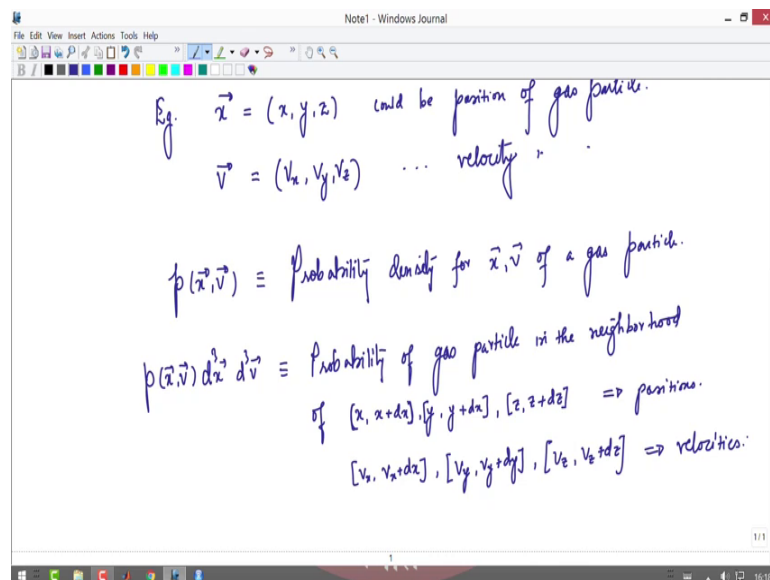 Note1 - Windows Journal
File Edit View Insert Actions Tools Help
B I
Eg. x⃗ = (x, y, z) could be position of gas particle.
v⃗ = (Vx, Vy, Vz) ... velocity " .
p(x⃗,v⃗) ≡ Probability density for x⃗, v⃗ of a gas particle.
p(x⃗,v⃗) d³x⃗ d³v⃗ ≡ Probability of gas particle in the neighborhood
of [x, x+dx], [y, y+dx], [z, z+dz] => positions.
[Vx, Vx+dx], [Vy, Vy+dy], [Vz, Vz+dz] => velocities.
1/1
1